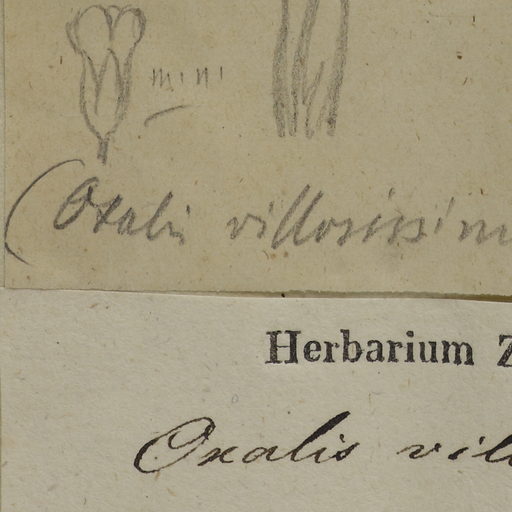 mini
(Oxalis villosissim
Herbarium Z
Oxalis vill